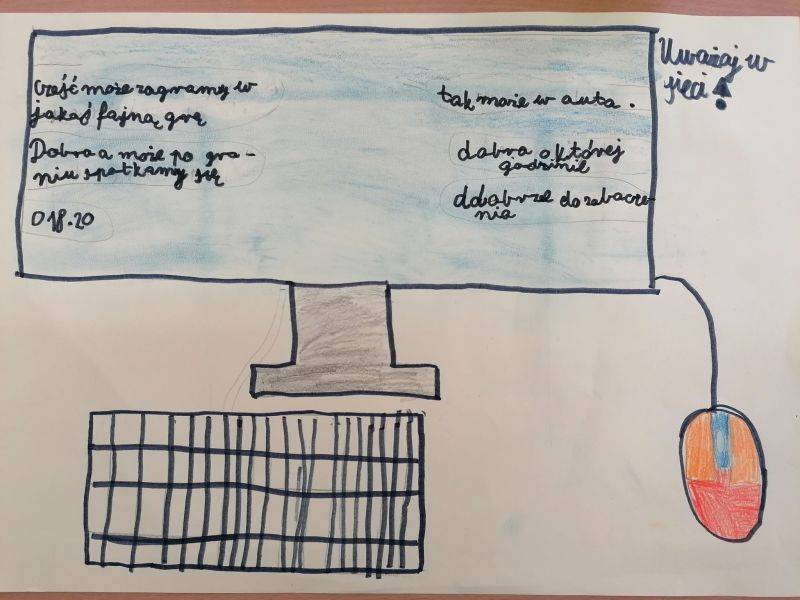 cześć może zagramy w
jakąś fajną grę
tak może w auta.
Dobra a może po gra-
niu spotkamy się
dobra o której
godzinie
O 18.20
ddobrze do zobacze-
nia
Uważaj w
sieci!